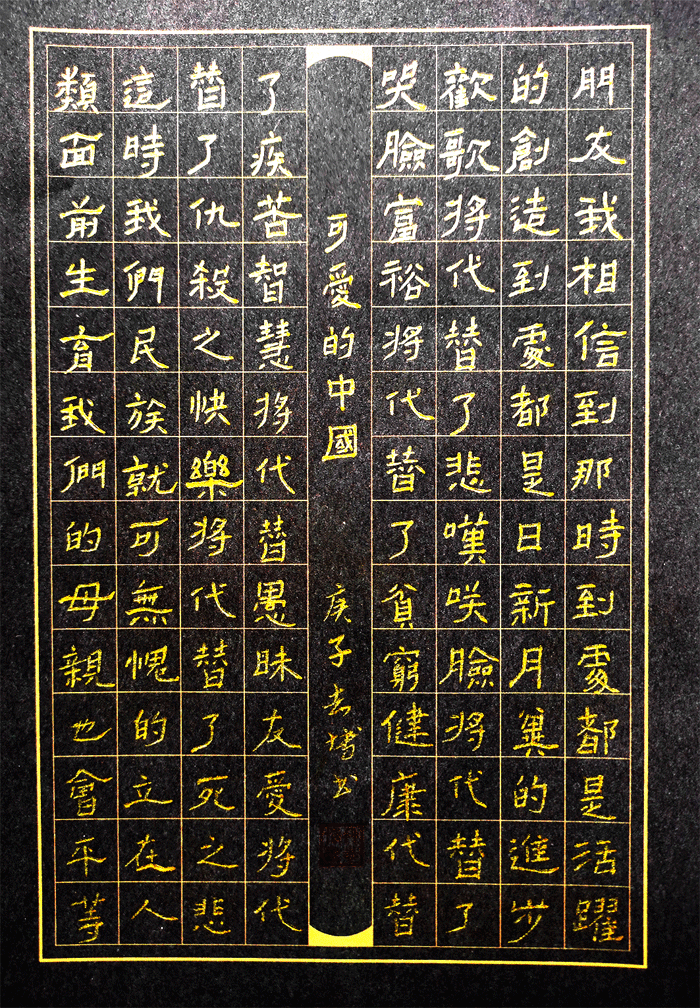 朋友我相信到那時到處都是活躍
的創造到處都是日新月異的進步
歡歌將代替了悲嘆咲臉將代替了
哭臉富裕將代替了貧窮健康代替
可愛的中國
庚子
了疾苦智慧將代替愚昧友愛將代
替了仇殺之快樂將代替了死之悲
這時我們民族就可無愧的立在人
類面前生育我們的母親也會平等